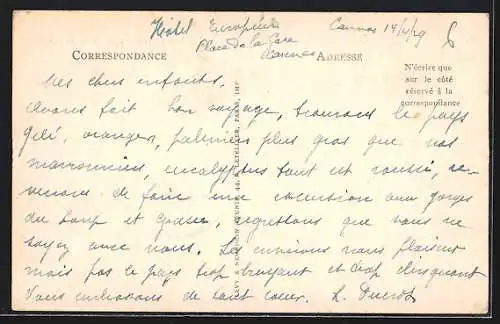 Hôtel Européen Cannes 14/4/29
Place de la Gare
Cannes
CORRESPONDANCE
ADRESSE
N'écrire que
sur le côté
réservé à la
correspondance
Mes chers enfants.
Avons fait bon voyage, trouvons le pays
gelé, orangers, palmiers plus gros que nos
marronniers, eucalyptus tout est roussi, re-
venons de faire une excursion aux gorges
du Loup et Grasse, regrettons que vous ne
soyez avec nous. Les environs nous plaisent
mais pas le pays trop bruyant et trop clinquant
Vous embrassons de tout coeur. L. Ducrot
LÉVY & NEURDEIN RÉUNIS, 44, R. LETELLIER, PARIS, IMP.